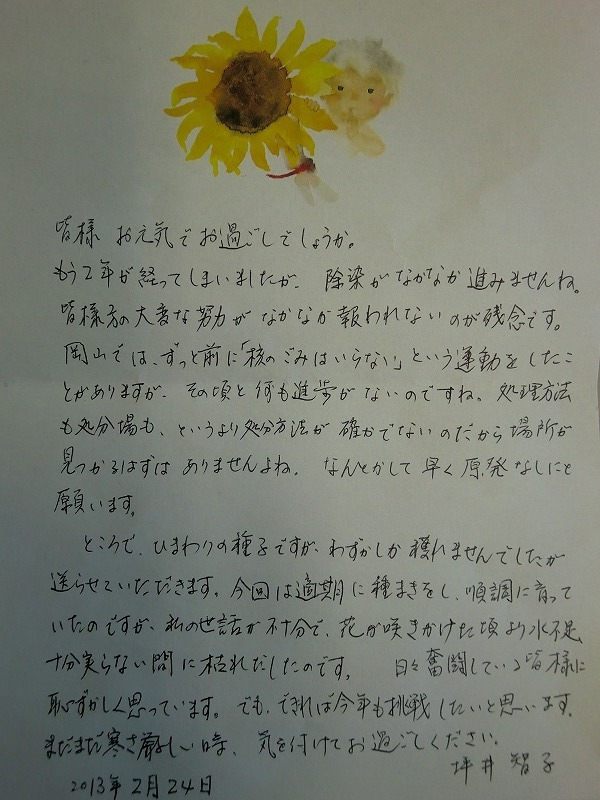 皆様 お元気でお過ごしでしょうか。
もう2年が経ってしまいましたが、除染がなかなか進みませんね。
皆様方の大変な努力がなかなか報われないのが残念です。
岡山では、ずっと前に「核のごみはいらない」という運動をしたこ
とがありますが、その頃と何も進歩がないのですね。処理方法
も処分場も、というより処分方法が確かでないのだから場所が
見つかるはずはありませんよね。なんとかして早く原発なしにと
願います。
ところで、ひまわりの種子ですが、わずかしか穫れませんでしたが
送らせていただきます。今回は適期に種まきをし、順調に育って
いたのですが、私の世話が不十分で、花が咲きかけた頃より水不足
十分実らない間に枯れだしたのです。 日々奮闘している皆様に
恥ずかしく思っています。でも、できれば今年も挑戦したいと思います。
まだまだ寒さ厳しい時、気を付けてお過ごしください。
坪井 智子
2013年2月24日